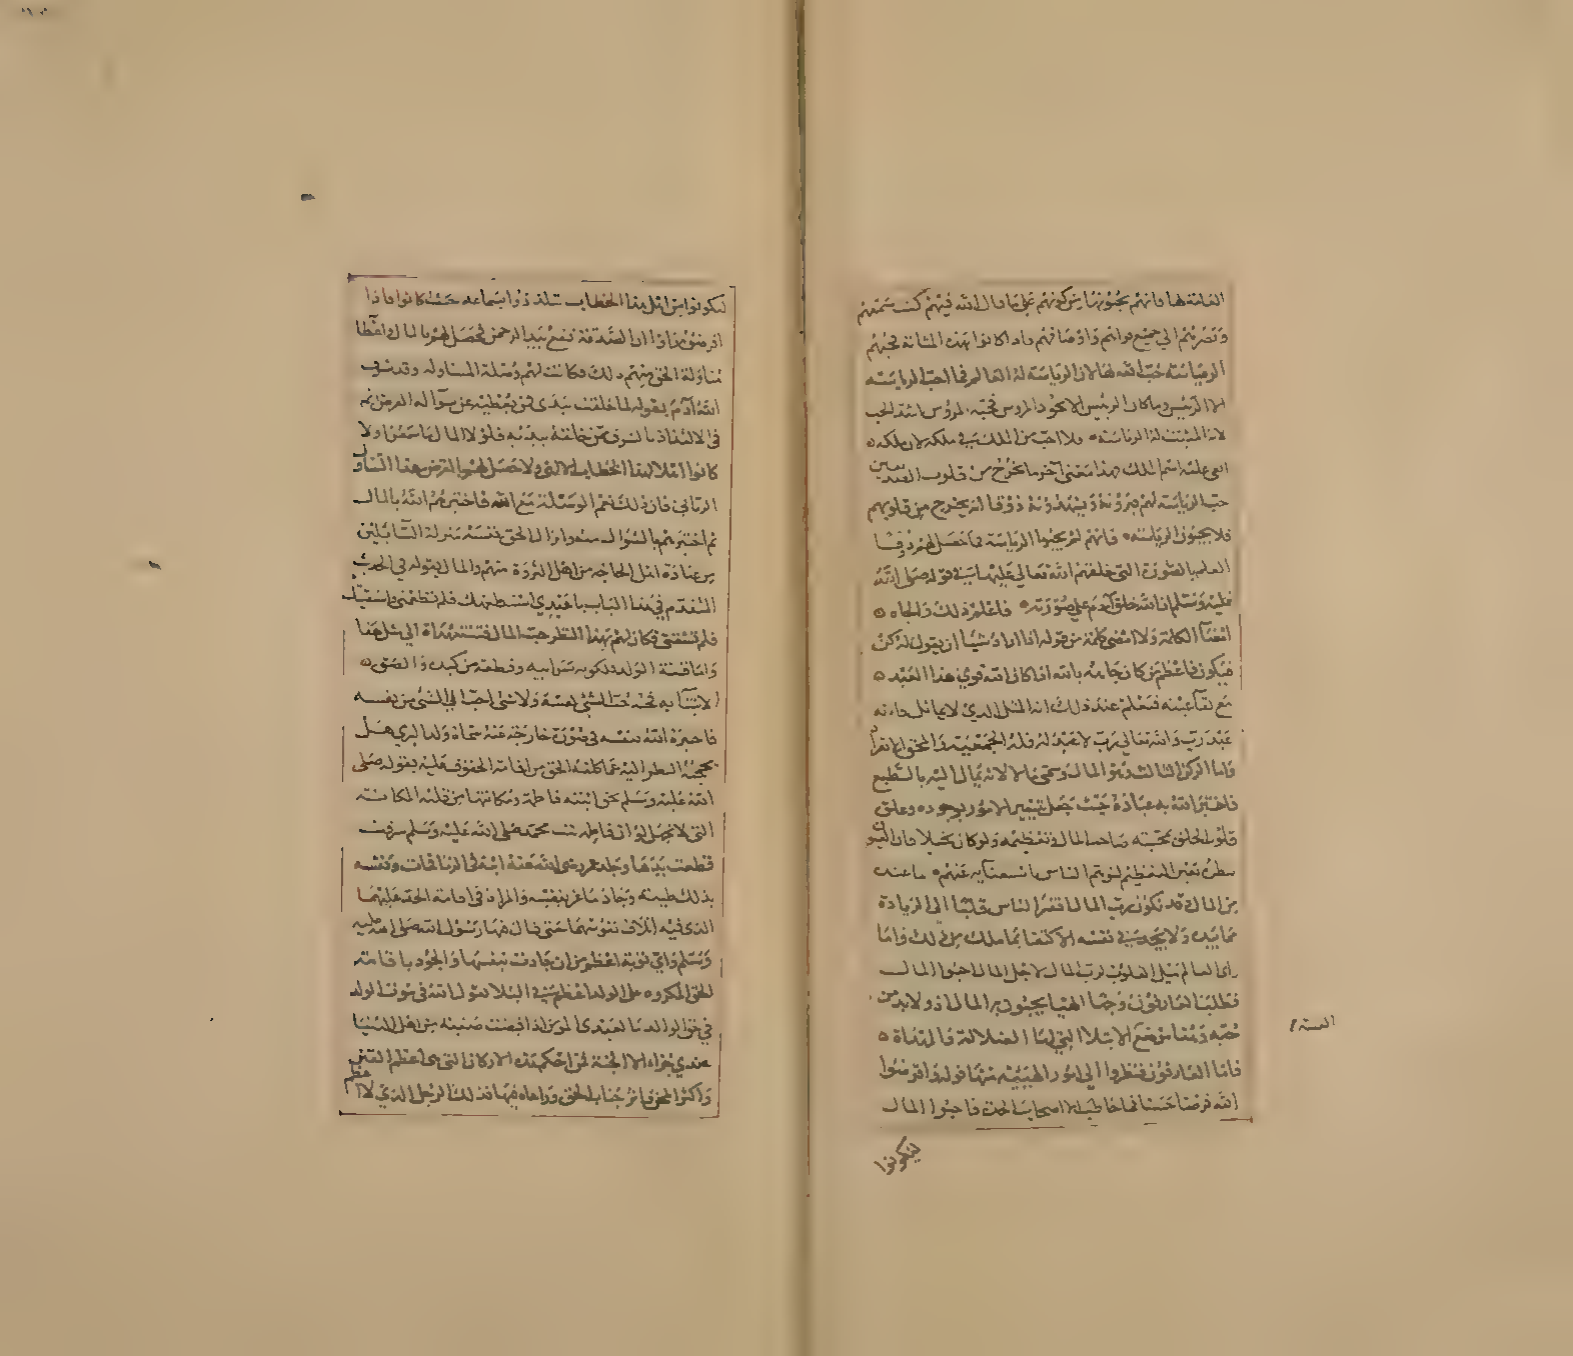 العامة لها فانهم يحبونها من كونهم على ما قال الله فيهم كنت سمعهم
وبصرهم الى جميع قواهم واعضائهم فاذا كانوا بهذه المثابة فبحبهم
الرياسة حب الله لها لان الرياسة له العالم فما احب الرياسة
الا الرئيس وما كان الرئيس الا بوجود المرؤس فمحبته المرؤس اشد الحب
لانه المثبت له الرياسة ولا احب من الملك في ملكه لان ملكه
ابقى عليه اسم الملك فهذا معنى آخر ما يخرج من قلوب الصديقين
حب الرياسة لهم فيرونه ويشهدونه ذوقا لا انه يخرج من قلوبهم
فلا يحبون الرياسة فانهم لو لم يحبوا الرياسة ما حصل لهم ذوقا
العلم بالصورة التي خلقهم الله تعالى عليها في قوله صلى الله
عليه وسلم ان الله خلق آدم على صورته فاعلم ذلك والجاه
امضاء الكلمة ولا امضى كلمة من قوله اذا اراد شيئا ان يقول له كن
فيكون فاعظم من كان جاهه بالله اذا كان الله قوي هذا العبد
مع بقاء عينه فيعلم عند ذلك انه المثل الذي لا يماثل فانه
عبد رب والله تعالى رب لا عبد له فله الجمعية وللحق الانفراد
واما الركن الثالث وهو المال وسمي مالا لانه يمال اليه بالطبع
فاختبر الله به عباده حيث جعل تيسير الامور بوجوده وعلق
قلوب الخلق بمحبة صاحب المال وتعظيمه ولو كان بخيلا فان العيون
تنظره بعين التعظيم لتوهم الناس باستغنائه عنهم ما عنده
من المال وقد يكون رب المال افقر الناس قلبا الى الزيادة
مما بيده ولا يجد في نفسه الاكتفاء بما ملك من ذلك ولما
راى العالم ميل القلوب لرب المال لاجل المال احبوا المال
فطلب العارفون وجها الهيا يحبون به المال اذ ولا بد من
حبه وهنا موضع الابتلاء التي لها الضلالة والمهداة
فاما العارفون فنظروا الى امور الهية منها قوله واقرضوا
الله قرضا حسنا فما خاطب الا اصحاب الجدة فاحبوا المال
ليكونوا
ليكونوا من اهل هذا الخطاب تلذذوا بسماعه حيث كانوا فاذا
اقرضوه راوا ان الصدقة تقع بيد الرحمن فحصل لهم بالمال واعطائه
مناولة الحق منهم ذلك فكانت لهم وصلة المناولة وقد شرف
الله آدم بقوله لما خلقت بيدي فمن يعطيه عن سؤاله القرض اتم
في الالتذاذ بالشرف ممن خلقه بيديه فلولا المال ما سمعوا ولا
كانوا اهلا لهذا الخطاب الالهي ولا حصل لهم بالقرض هذا التناول
الرباني فان ذلك نعم الوصلة مع الله فاختبرهم الله بالمال
ثم اختبرهم بالسؤال منه وانزل الحق نفسه منزلة السائلين
من عباده اهل الحاجة من اهل الثروة منهم والمال بقوله في الحديث
المتقدم في هذا الباب يا عبدي استطعمتك فلم تطعمني واستقيتك
فلم تسقني فكان لهم بهذا النظر حب المال فتنة مهداة الى مثل هذا
واما فتنة الولد فلكونه سر ابيه وقطعة من كبده والصق
الاشياء به فحبه حب الشئ نفسه ولا شئ احب الى الشئ من نفسه
فاختبره الله بنفسه في صورة خارجة عنه سماه ولدا ليرى هل
يحجبه النظر اليه عما كلفه الحق من اقامة الحقوق عليه يقول صلى
الله عليه وسلم بحق ابنته فاطمة ومكانتها من قلبه المكانة
التي لا تجهل لو ان فاطمة بنت محمد صلى الله عليه وسلم سرقت
قطعت يدها وجلد عمر رضي الله عنه ابنه في الزنا فمات ونفسه
بذلك طيبة وجاد ماعز بنفسه والمراة في اقامة الحد عليهما
الذي فيه اتلاف نفوسهما حتى قال فيهما رسول الله صلى الله عليه
وسلم واي توبة اعظم من ان جادت بنفسها والجود باقامة
الحق المكروه على الولد اعظم في البلاء يقول الله في موت الولد
في حق الوالد ما لعبدي المؤمن اذا قبضت صفيه من اهل الدنيا
عندي جزاء الا الجنة فمن احكم هذه الاركان التي هي اعظم الفتن
واكبر المحن فآثر جناب الحق وراعاه فيها فذلك الرجل الذي لا اعظم